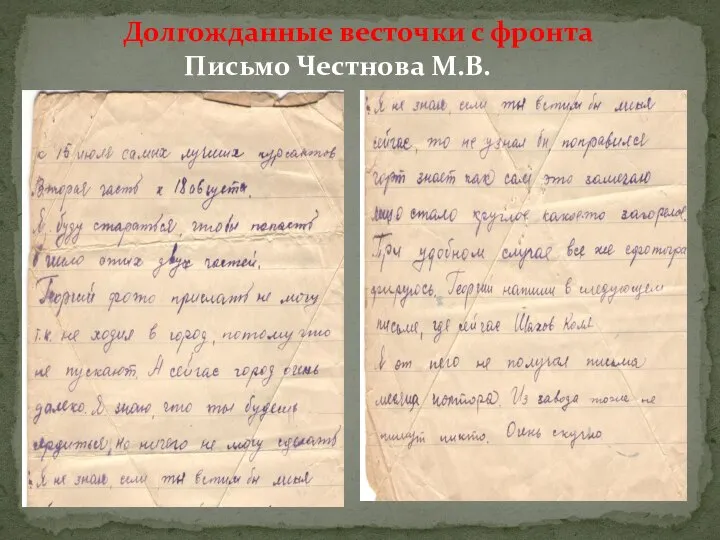 Долгожданные весточки с фронта
Письмо Честнова М.В.
к 15 июля самых лучших курсантов
Вторая часть к 18 августа.
Я буду стараться, чтобы попасть
в число этих двух частей.
Георгий фото прислать не могу
т.к. не ходил в город, потому что
не пускают. А сейчас город очень
далеко. Я знаю, что ты будешь
сердиться, но ничего не могу сделать
Я не знаю, если ты встин бы меня
Я не знаю, если ты встин бы меня
сейчас, то не узнал бы поправился
чорт знает как сам это замечаю
лицо стало круглое какое-то загорелое.
При удобном случае все же сфотогра
фируюсь. Георгий напиши в следующем
письме, где сейчас Шахов Коля
Я от него не получал письма
месяца полтора. Из завода тоже не
пишут никто. Очень скучно